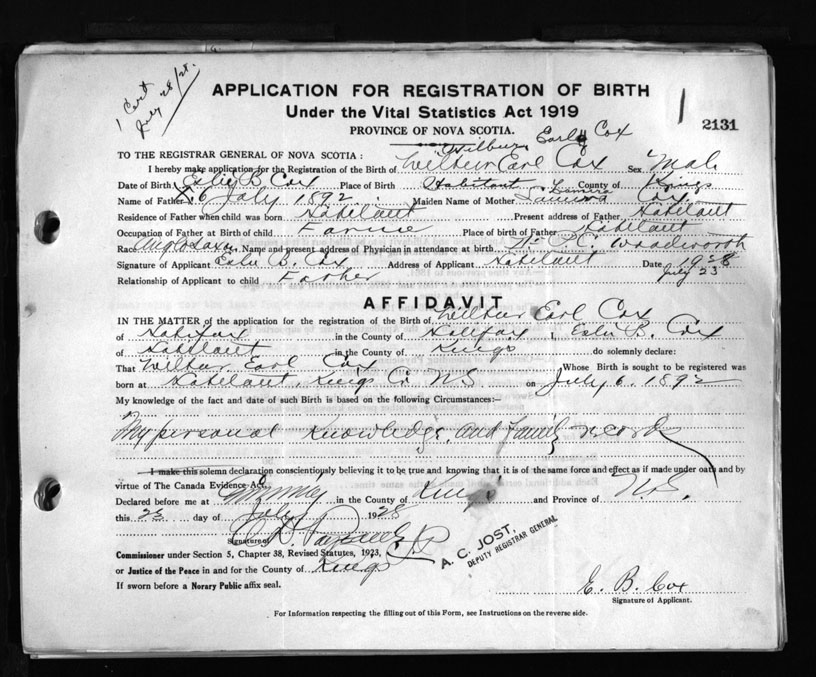 1 Cert
July 28/28.
APPLICATION FOR REGISTRATION OF BIRTH
Under the Vital Statistics Act 1919
PROVINCE OF NOVA SCOTIA.
1
2131
Wilbur Earl Cox
TO THE REGISTRAR GENERAL OF NOVA SCOTIA :
I hereby make application for the Registration of the Birth of Wilbur Earl Cox Sex Male
Date of Birth Eslie B Cox Place of Birth Habitant County of Kings
Name of Father 6 July 1892 Maiden Name of Mother Cox
Residence of Father when child was born Habitant Present address of Father Habitant
Occupation of Father at Birth of child Farmer Place of birth of Father Habitant
Race Anglo Saxon Name and present address of Physician in attendance at birth Woodworth
Signature of Applicant Eslie B. Cox Address of Applicant Habitant Date 1928
Relationship of Applicant to child Father July 23
AFFIDAVIT
IN THE MATTER of the application for the registration of the Birth of Wilbur Earl Cox
of Habitant in the County of Halifax I, Eslie B. Cox
of Habitant in the County of Kings do solemnly declare:
That Wilbur Earl Cox Whose Birth is sought to be registered was
born at Habitant, Kings Co. NS on July 6, 1892
My knowledge of the fact and date of such Birth is based on the following Circumstances:—
My personal knowledge, and family records
I make this solemn declaration conscientiously believing it to be true and knowing that it is of the same force and effect as if made under oath and by
virtue of The Canada Evidence Act.
Declared before me at in the County of Kings and Province of N.S.
this 23 day of July 1928
Signature J.P.
Commissioner under Section 5, Chapter 38, Revised Statutes, 1923,
or Justice of the Peace in and for the County of Kings
If sworn before a Norary Public affix seal.
A. C. JOST,
DEPUTY REGISTRAR GENERAL
E. B. Cox
Signature of Applicant.
For Information respecting the filling out of this Form, see Instructions on the reverse side.